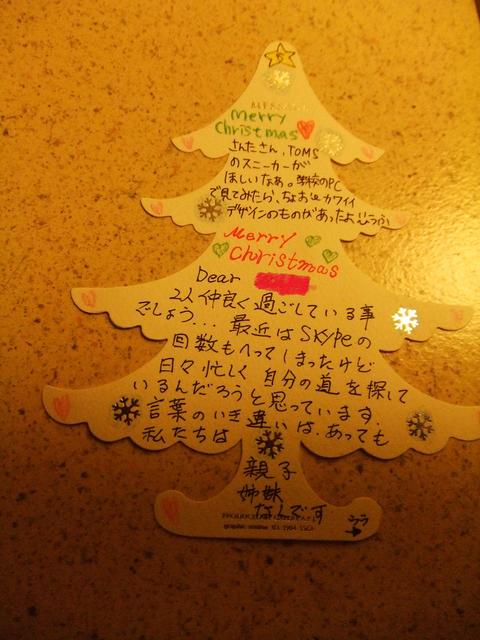 merry
christmas
さんたさん、TOMS
のスニーカーが
ほしいなあ。学校のPC
で見てみたら、ちょおカワイイ
デザインのものがあったよ
Merry
Christmas
Dear
2人仲良く過ごしている事
でしょう... 最近はSkypeの
回数もへってしまったけど
日々忙しく自分の道を探して
いるんだろうと思っています。
言葉のいき違いは、あっても
私たちは
親子
姉妹
なんです
うら